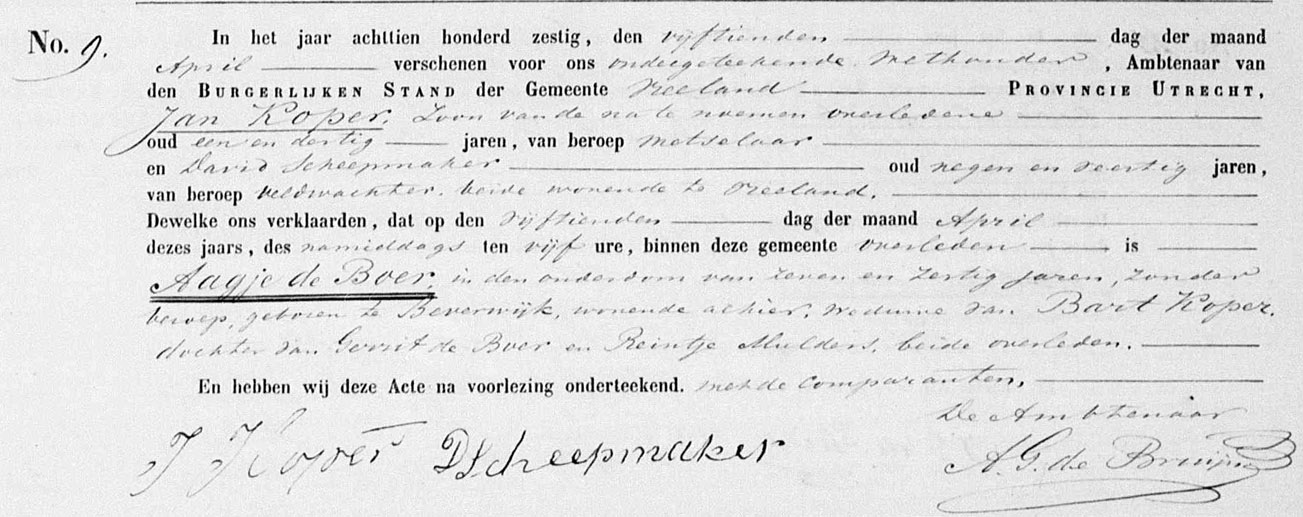 No. 9.
In het jaar achttien honderd zestig, den vijftienden dag der maand
April verschenen voor ons ondergeteekende Wethouder, Ambtenaar van
den BURGERLIJKEN STAND der Gemeente Vreeland PROVINCIE UTRECHT,
Jan Koper, Zoon van de na te noemen overledene
oud een en dertig jaren, van beroep metselaar
en David Scheepmaker oud negen en veertig jaren,
van beroep veldwachter, beide wonende te Vreeland,
Dewelke ons verklaarden, dat op den vijftienden dag der maand April
dezes jaars, des namiddags ten vijf ure, binnen deze gemeente overleden is
Aagje de Boer, in den ouderdom van zeven en zestig jaren, zonder
beroep, geboren te Beverwijk, wonende alhier, weduwe van Bart Koper,
dochter van Gerrit de Boer en Reintje Mulders, beide overleden.
En hebben wij deze Acte na voorlezing onderteekend. met de Comparanten,
De Ambtenaar
J Koper D Scheepmaker A. G. de Bruijn